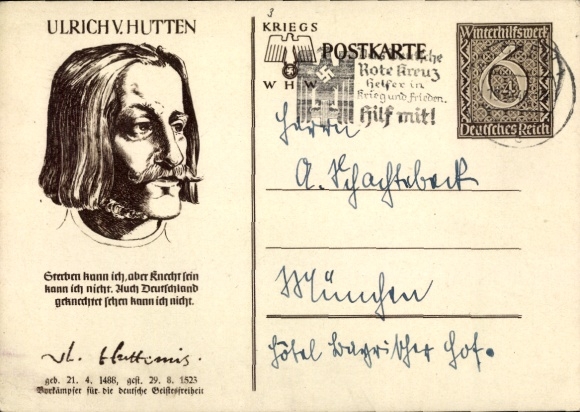 ULRICH V. HUTTEN
Sterben kann ich, aber Knecht sein
kann ich nicht. Auch Deutschland
geknechtet sehen kann ich nicht.
geb. 21. 4. 1488, gest. 29. 8. 1523
Vorkämpfer für die deutsche Geistesfreiheit
3
KRIEGS
WHW
POSTKARTE
Rote Kreuz
Helfer in
Krieg und Frieden.
Hilf mit!
Winterhilfswerk
6
Deutsches Reich
Herrn
A. Schachtebeck
München
Hôtel Bayrischer Hof.